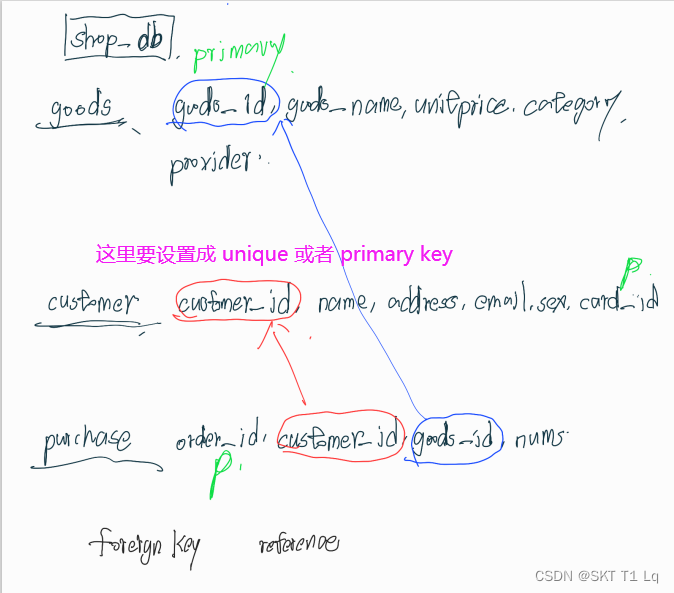 shop_db
primary
goods goods_id, goods_name, unitprice. category,
provider.
这里要设置成 unique 或者 primary key
p.
customer custmer_id, name, address, email, sex, card_id
purchase order_id, customer_id, goods_id, nums
p.
foreign key reference
CSDN @SKT T1 Lq